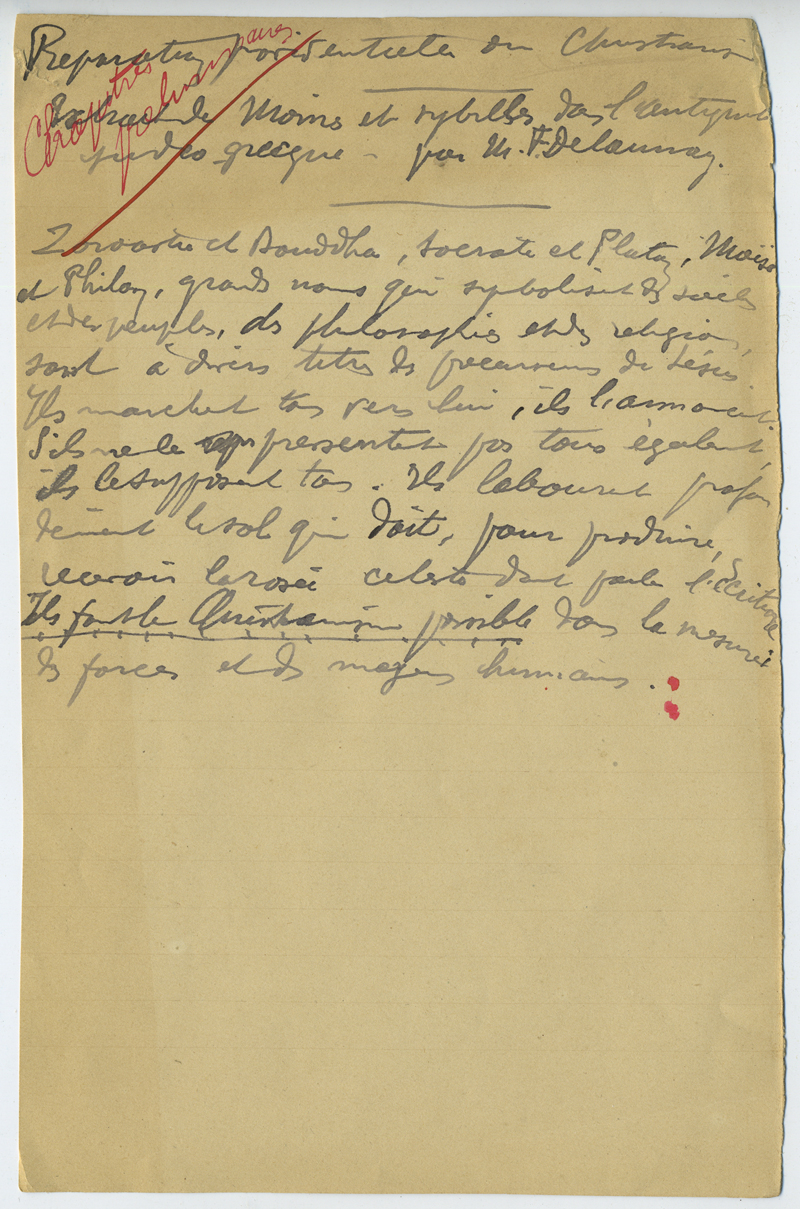 Preparation providentielle du Christianis
Chapitres
preliminaires
Extrait de Moines et sybilles dans l'antiquité
judeo grecque – par M. F. Delaunay.
Zoroastre et Bouddha, Socrate et Platon, Moïse
et Philon, grands noms qui symbolisent des siècles
et des peuples, des philosophies et des religions,
sont à divers titres des précurseurs de Jésus
Ils marchent tous vers lui, ils l'annoncent
S'ils ne le pressentent pas tous également,
ils le supposent tous. Ils labourent profon
dément le sol qui doit, pour produire,
recevoir la rosée céleste dont parle l'Écriture
Ils font le Christianisme possible dans la mesure
des forces et des moyens humains.